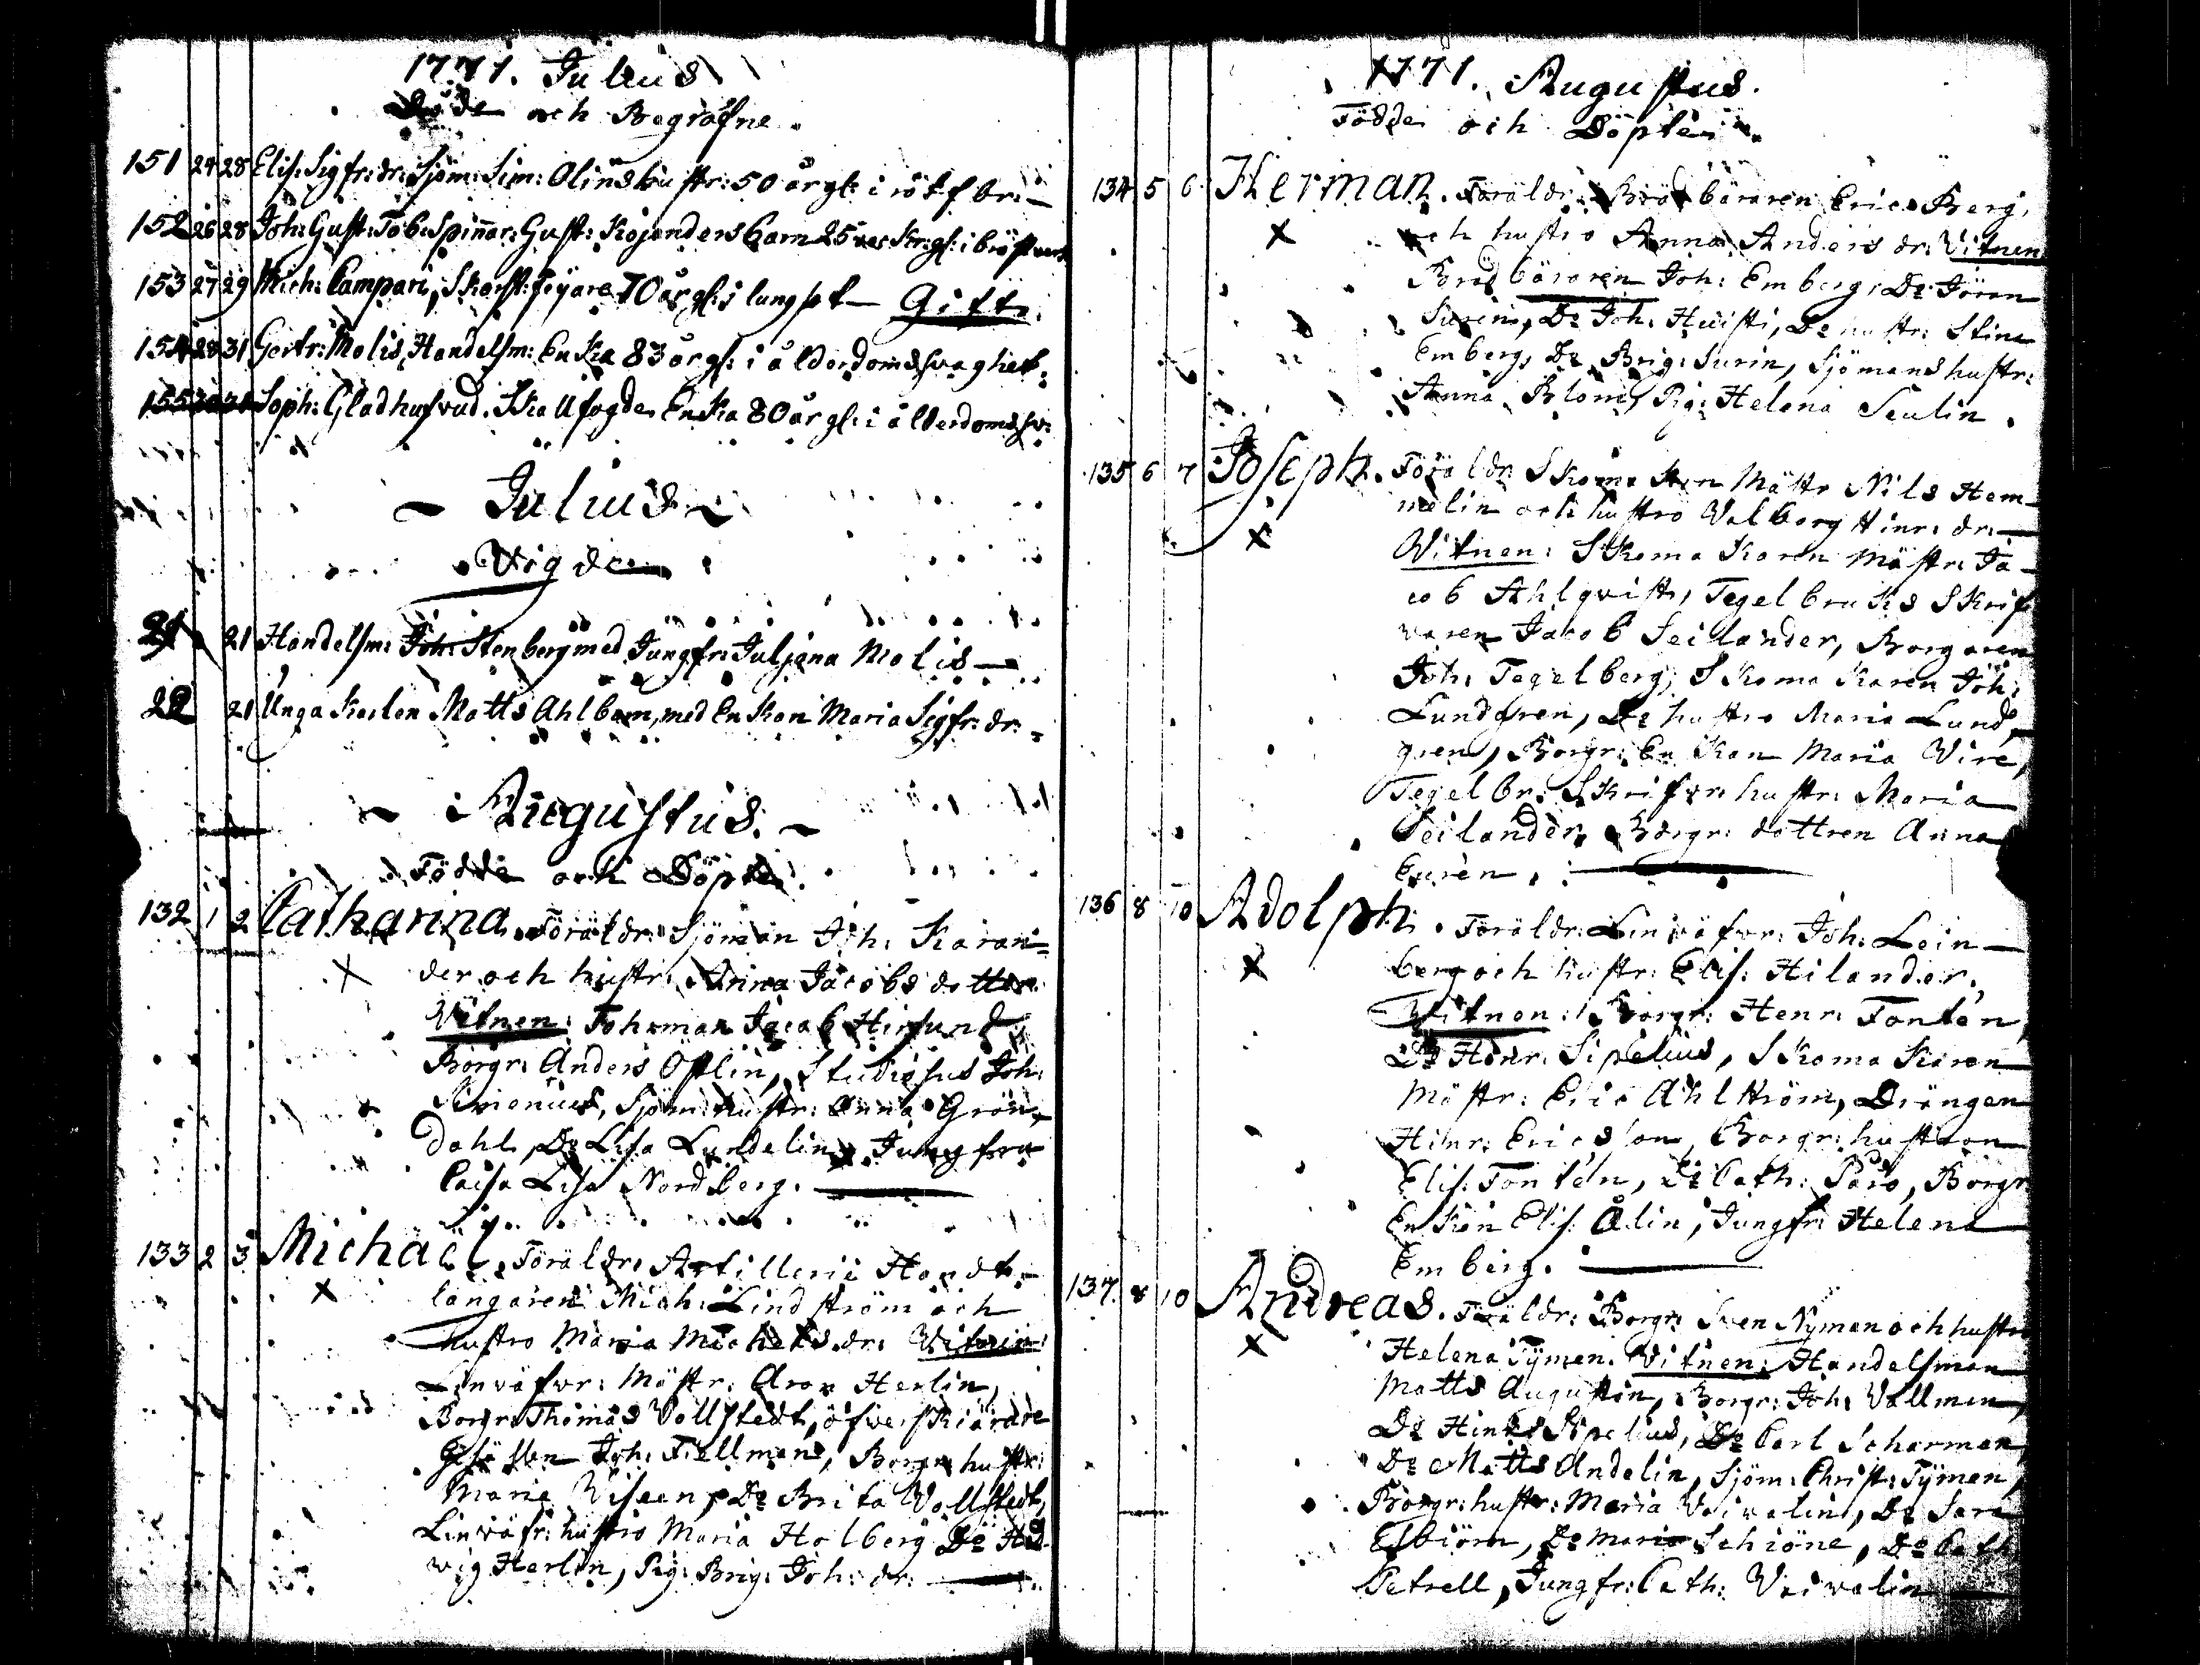 1771. Julius
Döde och Begrafne.
151 24 28 Elis: Sigfr: dr: Sjöm: Sim: Olins hustr: 50 år gl: i rötfbr: —
152 26 28 Joh: Gust: Tob: Spinnar: Gust: Kojanders barn 25 gl: i bröstverk
153 27 29 Mich: Campari, 70 år gl: i lungsot — Gift.
154 28 31 Gertr: Molis, Handelsm: Enka 83 år gl: i ålderdomsswaghet.
155 30 31 Soph: Gladhufvud. Skallfogde Enka 80 år gl: i ålderdomssw:
~ Julius ~
Vigde
21 21 Handelsm: Joh: Stenberg med Jungfr: Juljana Molis —
22 21 Unga Karlen Matts Ahlbom, med Enkan Maria Sigfr: dr:
~ Augustus. ~
Födde och Döpte.
132 1 2 Catharina. Föräldr: Sjöman Joh: Karan-
x der och hustr: Anna Jacobs dotter
Witnen: Fohrman Jacob Hirfund
Borgr: Anders Östlin, Studiosus Joh:
Simonius, Sjöm: hustr: Anna Grön-
dahl, Do Lisa Lundelin, Jungfru
Caisa Lisa Nordberg. —
133 2 3 Michaël. Föräldr: Artillerie Handt-
x langaren Mich: Lindström och
hustro Maria Michels dr: Witnen:
Linväfwr: Mästr: Aron Herlin,
Borgr: Thomas Vollstedt, öfverskiärare
Gesällen Joh: Fiellman, Borgr: hustr:
Maria Wiseen, Do Brita Vollstedt,
Linväfr: hustro Maria Holberg Do Hed-
wig Herlin, Pig: Brig: Joh: dr: —
1771. Augustus.
Födde och Döpte
134 5 6 Herman. Föräldr: Brödbäraren Eric Berg,
x och hustro Anna Anders dr: Witnen
Brödbäraren Joh: Emberg, Do Jöran
Surin, Do Joh: Huisti, Do hustr: Stina
Emberg, Do Brig: Surin, Sjömans hustr:
Anna Blom, Pig: Helena Seulin.
135 6 7 Joseph. Föräldr: Skomakaren Mästr Nils Hem-
x melin och hustro Walborg Hinr: dr: —
Witnen: Skomakaren Mästr: Ja-
cob Ahlqvist, Tegelbruks Skrif
varen Jacob Seilander, Borgaren
Joh: Tegelberg, Skomakaren Joh:
Lundgren, Do hustro Maria Lund-
gren, Borgr: Enkan Maria Wire,
Tegelbr: Skrifvr: hustr: Maria
Seilander, Borgr: dottren Anna
Euren. —
136 8 10 Adolph. Föräldr: Linväfwr: Joh: Lein-
x berg och hustr: Elis: Hilander.
Witnen: Borgr: Henr: Fontén,
Do Henr: Sipelius, Skomakaren
Mästr: Eric Ahlström, Drängen
Hinr: Ericsson, Borgr: hustron
Elis: Fontén, Do Cath: Paro, Borgr
Enkan Elis: Ålin, Jungfr: Helena
Emberg. —
137 8 10 Andreas. Föräldr: Borgr: Sven Nyman och hustro
x Helena Tymen. Witnen: Handelsman
Matts Augustin, Borgr: Joh: Vallmen,
Do Hinr: Sipelius, Do Carl Scharman,
Do Matts Andelin, Sjöm: Christ: Tymen,
Borgr: hustr: Maria Waivalin, Do Sara
Elbiörn, Do Maria Schiöne, Do Cath
Petrell, Jungfr: Cath: Waivalin —